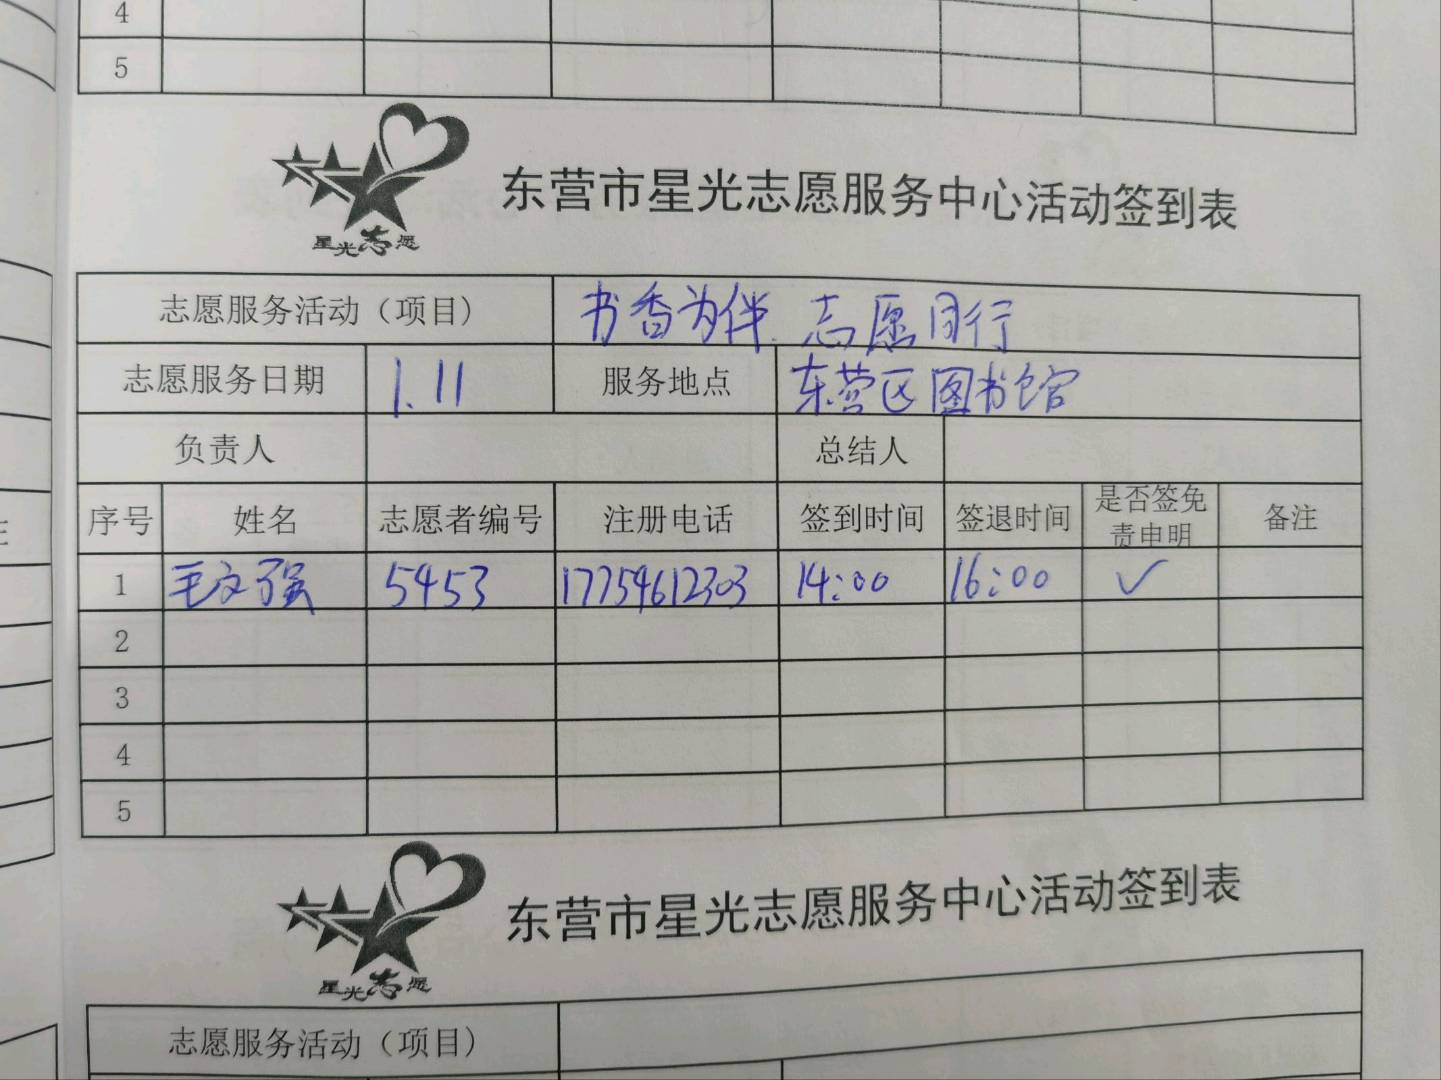 4
5
星光志愿
东营市星光志愿服务中心活动签到表
志愿服务活动（项目） 书香为伴 志愿同行
志愿服务日期 1.11 服务地点 东营区图书馆
负责人 总结人
序号 姓名 志愿者编号 注册电话 签到时间 签退时间 是否签免责申明 备注
1 毛文强 5453 17754612303 14:00 16:00 ✓
2
3
4
5
星光志愿
东营市星光志愿服务中心活动签到表
志愿服务活动（项目）